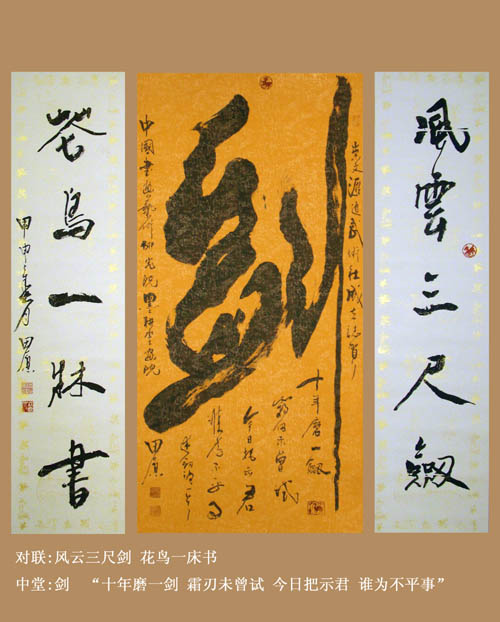 風雲三尺劔
劍
十年磨一劔
霜刃未曾試
今日把示君
誰為不平事
田原
中國書画藝術
花鳥一牀書
田原
对联:风云三尺剑 花鸟一床书
中堂:剑 “十年磨一剑 霜刃未曾试 今日把示君 谁为不平事”